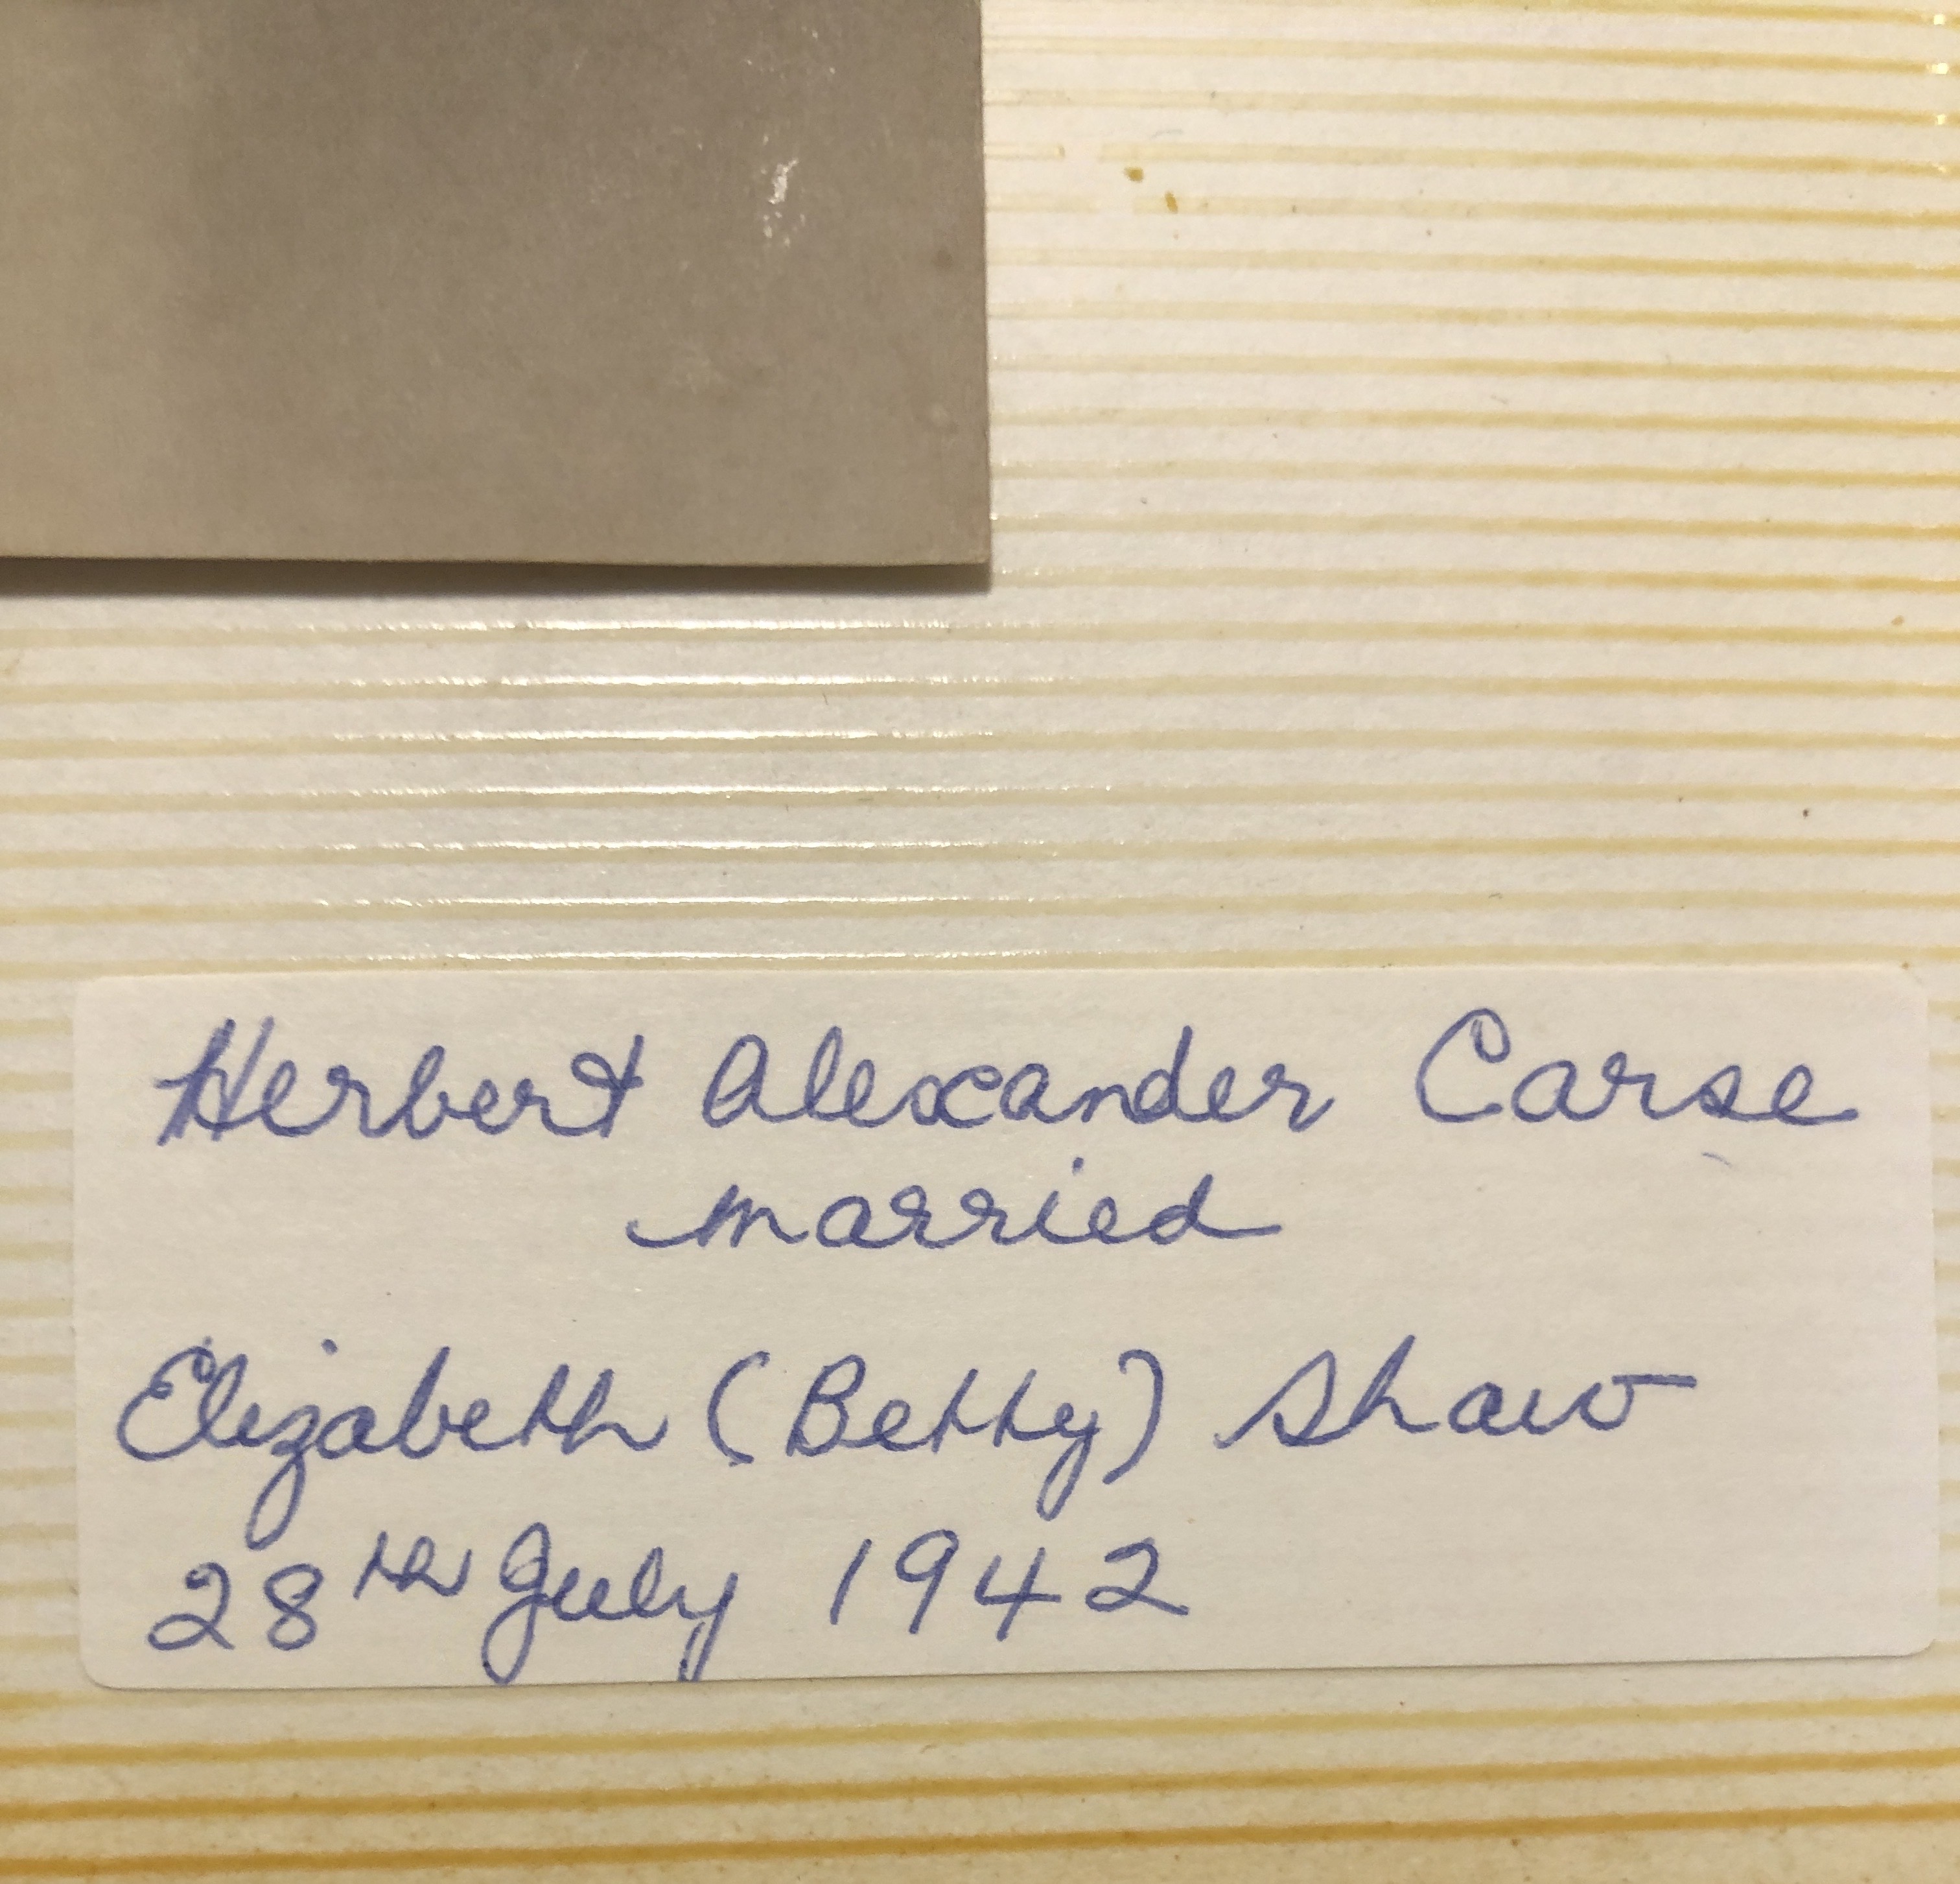 Herbert Alexander Carse
married
Elizabeth (Betty) Shaw
28th July 1942